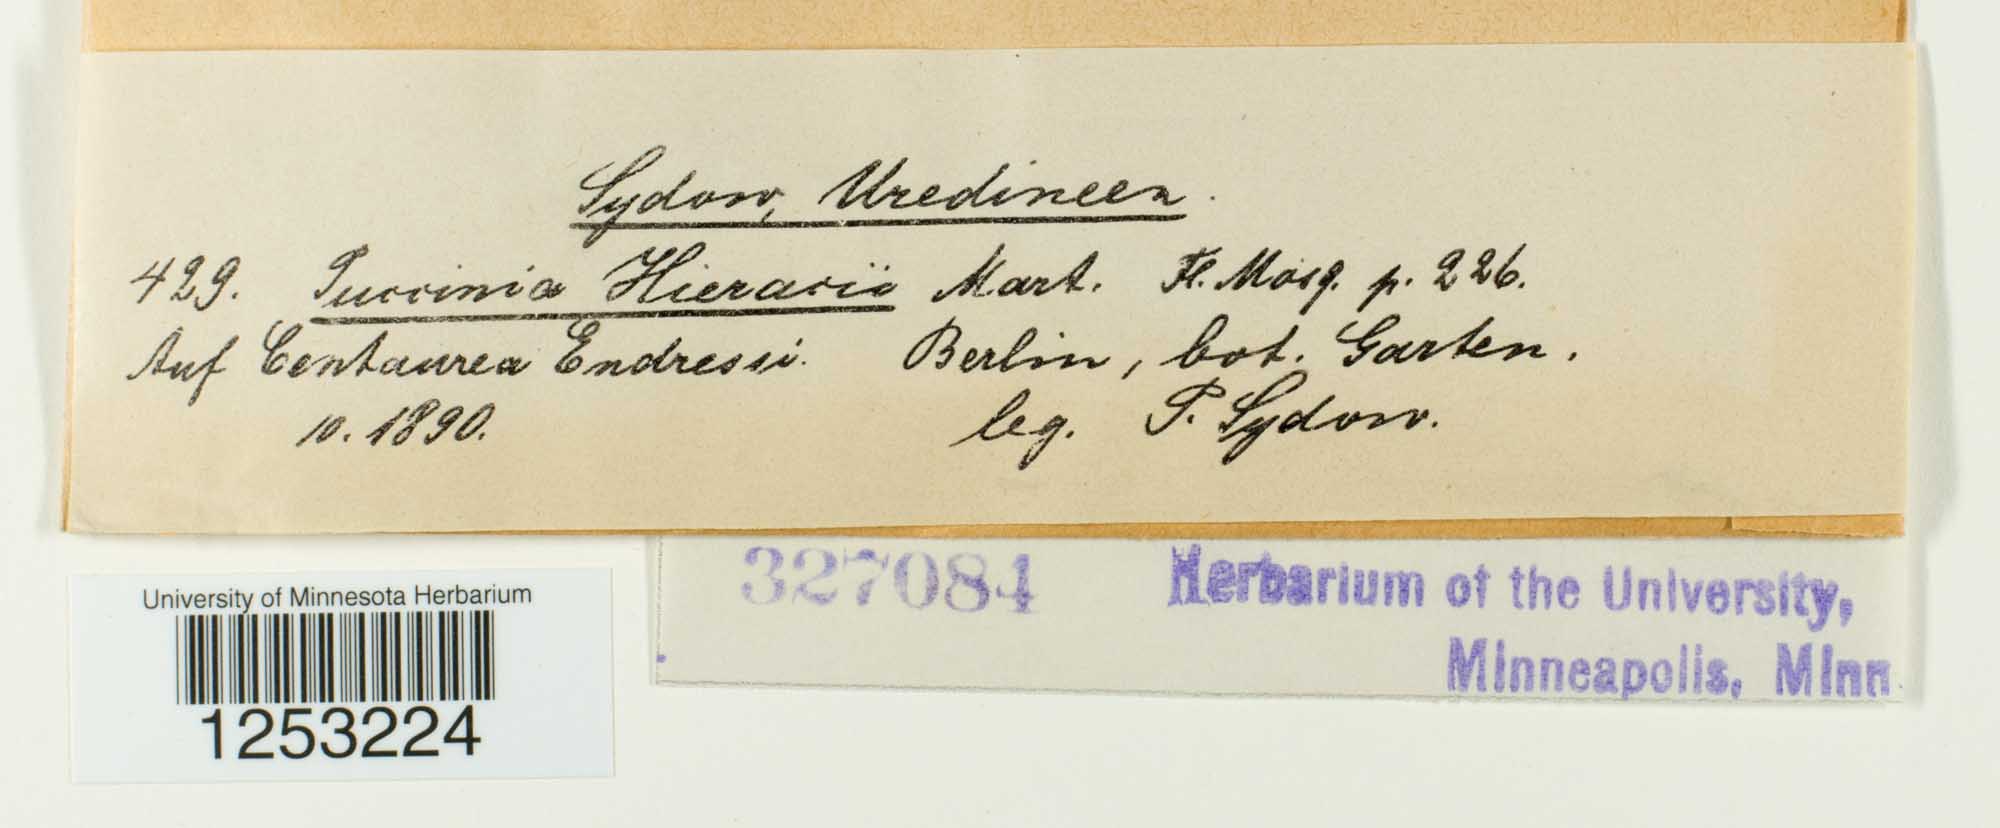 Sydow, Uredineen.
429. Puccinia Hieracii Mart. Fl. Mosq. p. 226.
Auf Centaurea Endressi. Berlin, bot. Garten.
10. 1890. leg. P. Sydow.
327084 Herbarium of the University,
Minneapolis, Minn
University of Minnesota Herbarium
1253224